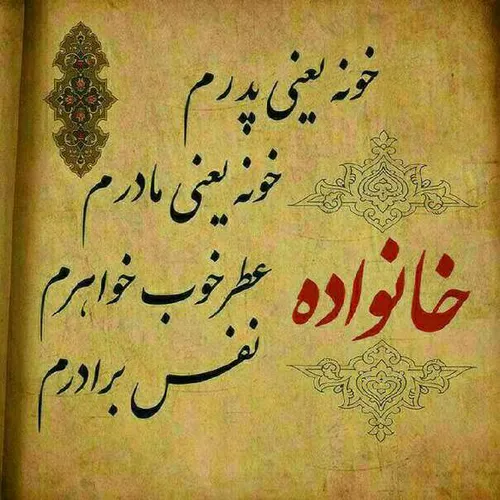 خونه یعنی پدرم
خونه یعنی مادرم
عطر خوب خواهرم
نفس برادرم
خانواده